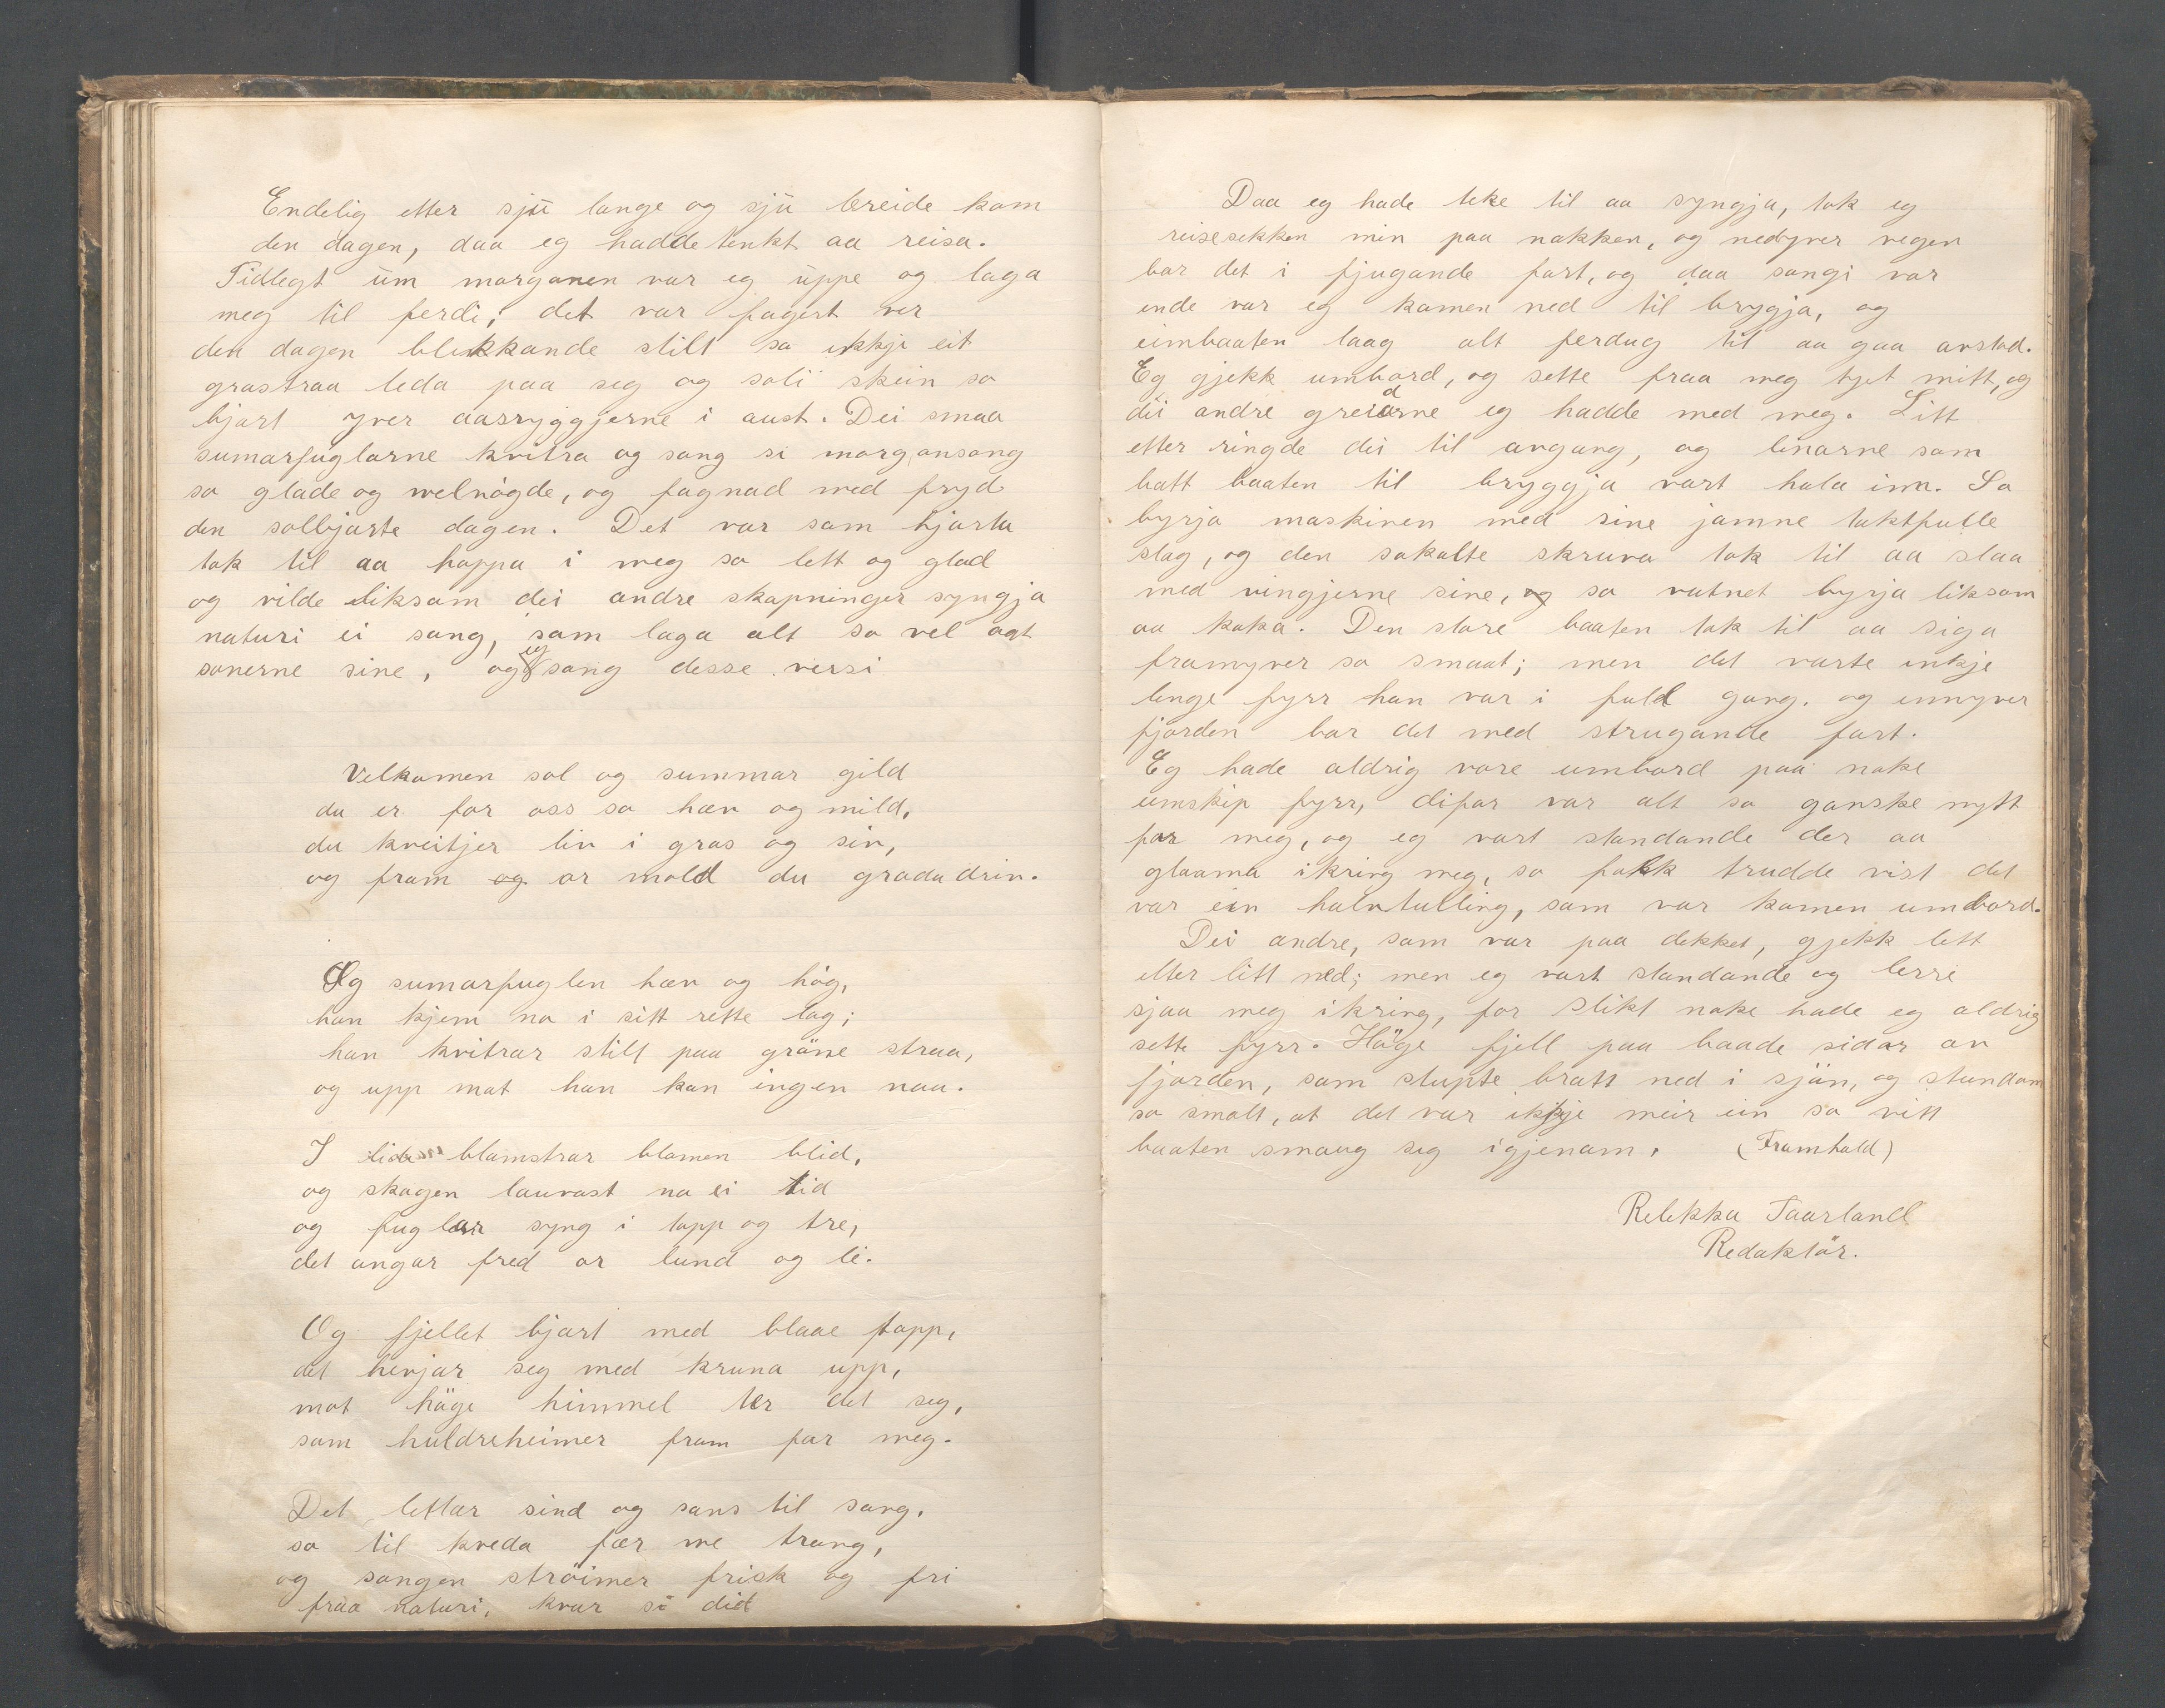 Endelig etter sjü lange og sjü breide kom
den dagen, daa eg hadde tenkt aa reisa.
Tidlegt üm morganen var eg üppe og laga
meg til ferdi; det var fagert ver
den dagen blikkande stilt so ikkje eit
grastraa leda paa seg og soli skein so
bjart yver aasryggjerne i aust. Dei smaa
sumarfuglarne kvitra og song si morgonsong
so glade og velnögde, og fagnad med fryd
den solbjarte dagen. Det var som hjarta
tok til aa hoppa i meg so lett og glad
og vilde liksom dei andre skapninger syngja
naturi ei song, som laga alt so vel aat
sonerne sine, og eg song desse versi
Velkomen sol og summar gild
du er for oss so hæv og mild,
du kveitjer liv i gras og siv,
og fram or mold du groda driv.
Og sumarfuglen hæv og hög,
han kjem no i sitt rette lag;
han kvitrar stilt paa gröne straa,
og upp mot han kan ingen naa.
I lidi blomstrar blomen blid,
og skogen lauvast no ei tid
og fuglar syng i topp og tre,
det angar fred or lund og le.
Og fjellet bjart med blaae topp,
det hevjar seg med kruna upp,
mot höge himmel ter det seg,
som huldreheimer fram for meg.
Det lettar sind og sans til song,
so til kveda fær me trong,
og songen ströimer frisk og fri
fraa naturi, kvar si did
Daa eg hade teke til aa syngja, tok eg
reisesekken min paa nakken, og nedyver vegen
bar det i fjugande fart, og daa songi var
ende var eg komen ned til brygja, og
eimbaaten laag alt ferdug til aa gaa avstad.
Eg gjekk umbord, og sette fraa meg tyet mitt, og
dei andre greidarne eg hadde med meg. Litt
etter ringde dei til avgang, og linarne som
batt baaten til bryggja vart hala inn. So
byrja maskinen med sine jamne taktfulle
slag, og den sokalte skruva tok til aa slaa
med vingjerne sine, so vatnet byrja liksom
aa koka. Den store baaten tok til aa siga
framyver so smaat; men det varte inkje
lenge fyrr han var i full gang, og innyver
fjorden bar det med strugande fart.
Eg hade aldrig vore umbord paa noke
eimskip fyrr, difor var alt so ganske nytt
for meg, og eg vart standande der aa
glaama ikring meg, so folk trudde vist det
var ein halvtulling, som var komen umbord.
Dei andre, som var paa dekket, gjekk lett
etter litt ned; men eg vart standande og berre
sjaa meg ikring, for slikt noke hade eg aldrig
sett fyrr. Höge fjell paa baade sidor av
fjorden, som stupte bratt ned i sjön, og stundom
so smalt, at det var ikkje meir ein so vitt
baaten smaug seg igjenom. (Framhald)
Rebekka Taarland
Redaktör.